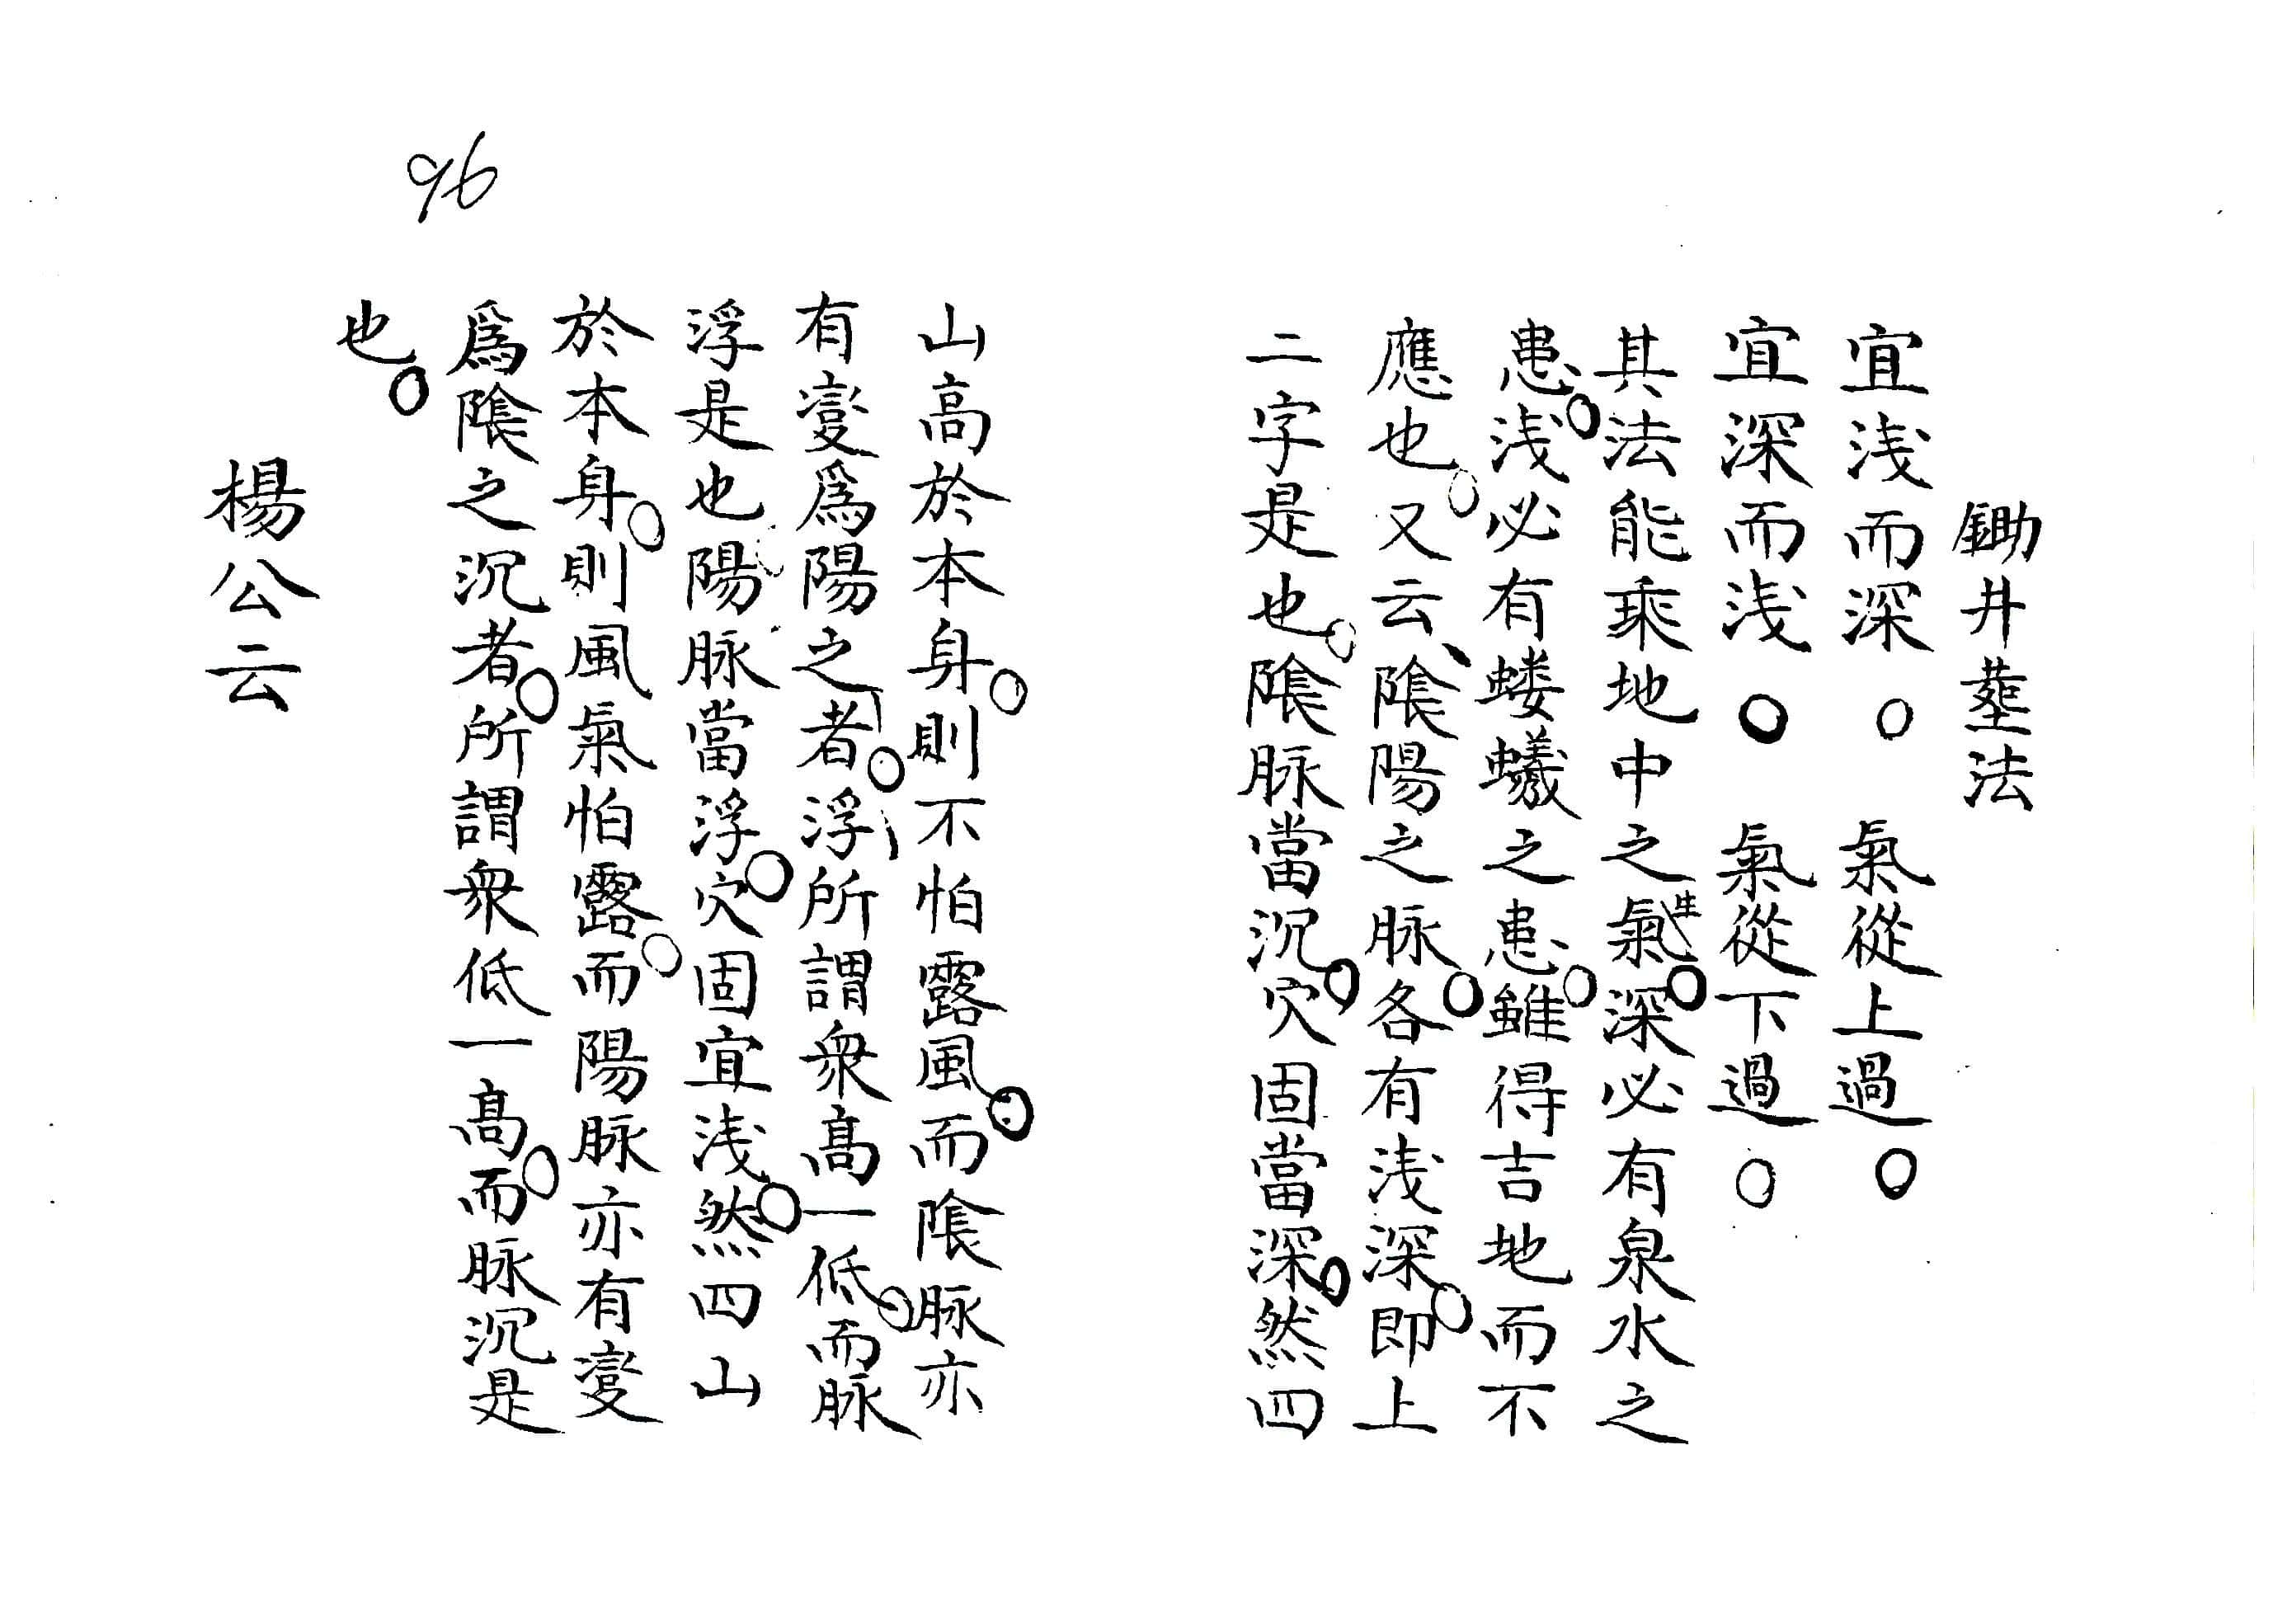 鋤井塟法
宜浅而深○氣從上過○
宜深而浅○氣從下過○
其法能乘地中之生氣○深必有泉水之
患○浅必有蝼蟻之患○雖得吉地而不
應也○又云、隂陽之脉○各有浅深○即上
二字是也○隂脉當沉○穴固當深○然四
山高於本身○則不怕露風○而隂脉亦
有變爲陽之者○浮所謂衆髙一低○而脉
浮是也○陽脉當浮○穴固宜浅○然四山
於本身○則風氣怕露○而陽脉亦有變
爲隂之沉者○所謂衆低一髙○而脉沉是
也○
楊公云
96